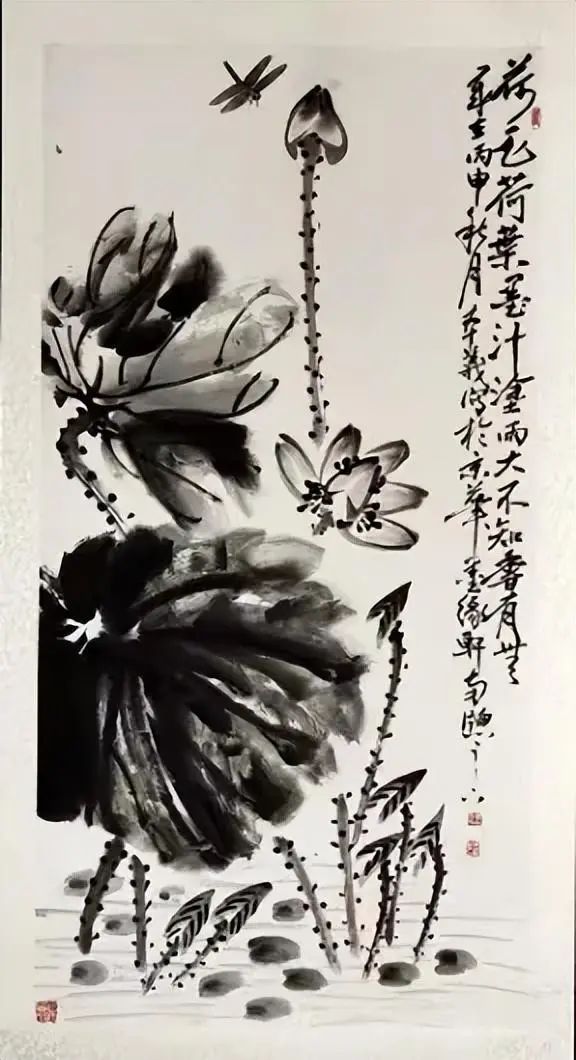 荷花荷葉墨汁塗雨大不知香有無
歲在丙申秋月義寫於京華墨緣軒南牕之下